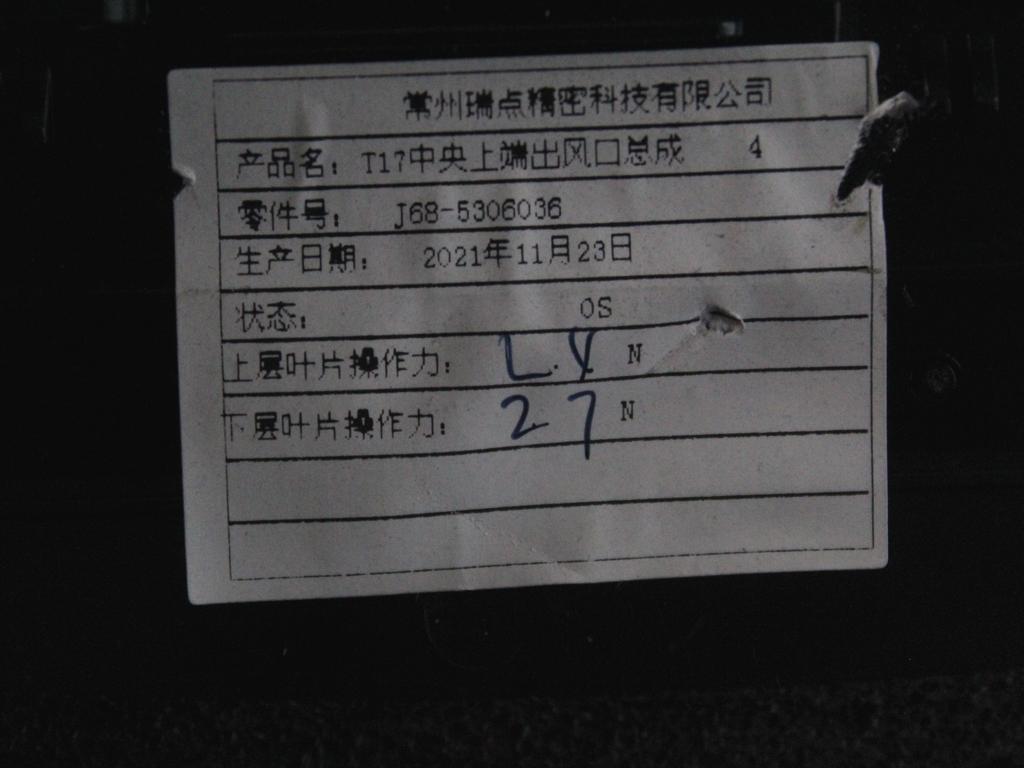 常州瑞点精密科技有限公司
产品名：T17中央上端出风口总成 4
零件号： J68-5306036
生产日期： 2021年11月23日
状态： OS
上层叶片操作力： N
下层叶片操作力： 27 N